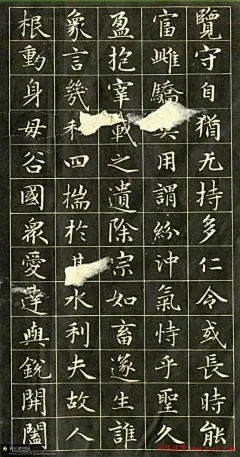 覽守自猶尤持多仁令或長時能
富雌驕用謂紛沖氣恃乎聖久
盈抱宰戰之遺除宗如畜遂生誰
象言幾和四揣於水利夫故人
根動身毋谷國衆愛達與銳開闔